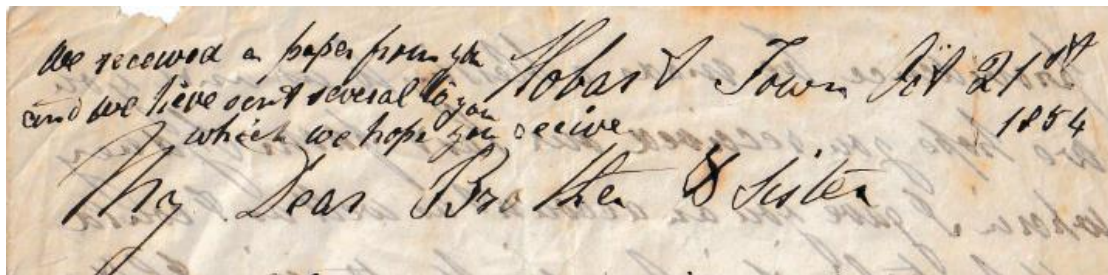 we received a paper from you
and we have sent several to you
which we hope you receive
Hobart Town Oct 21st
1854
My Dear Brother & Sister